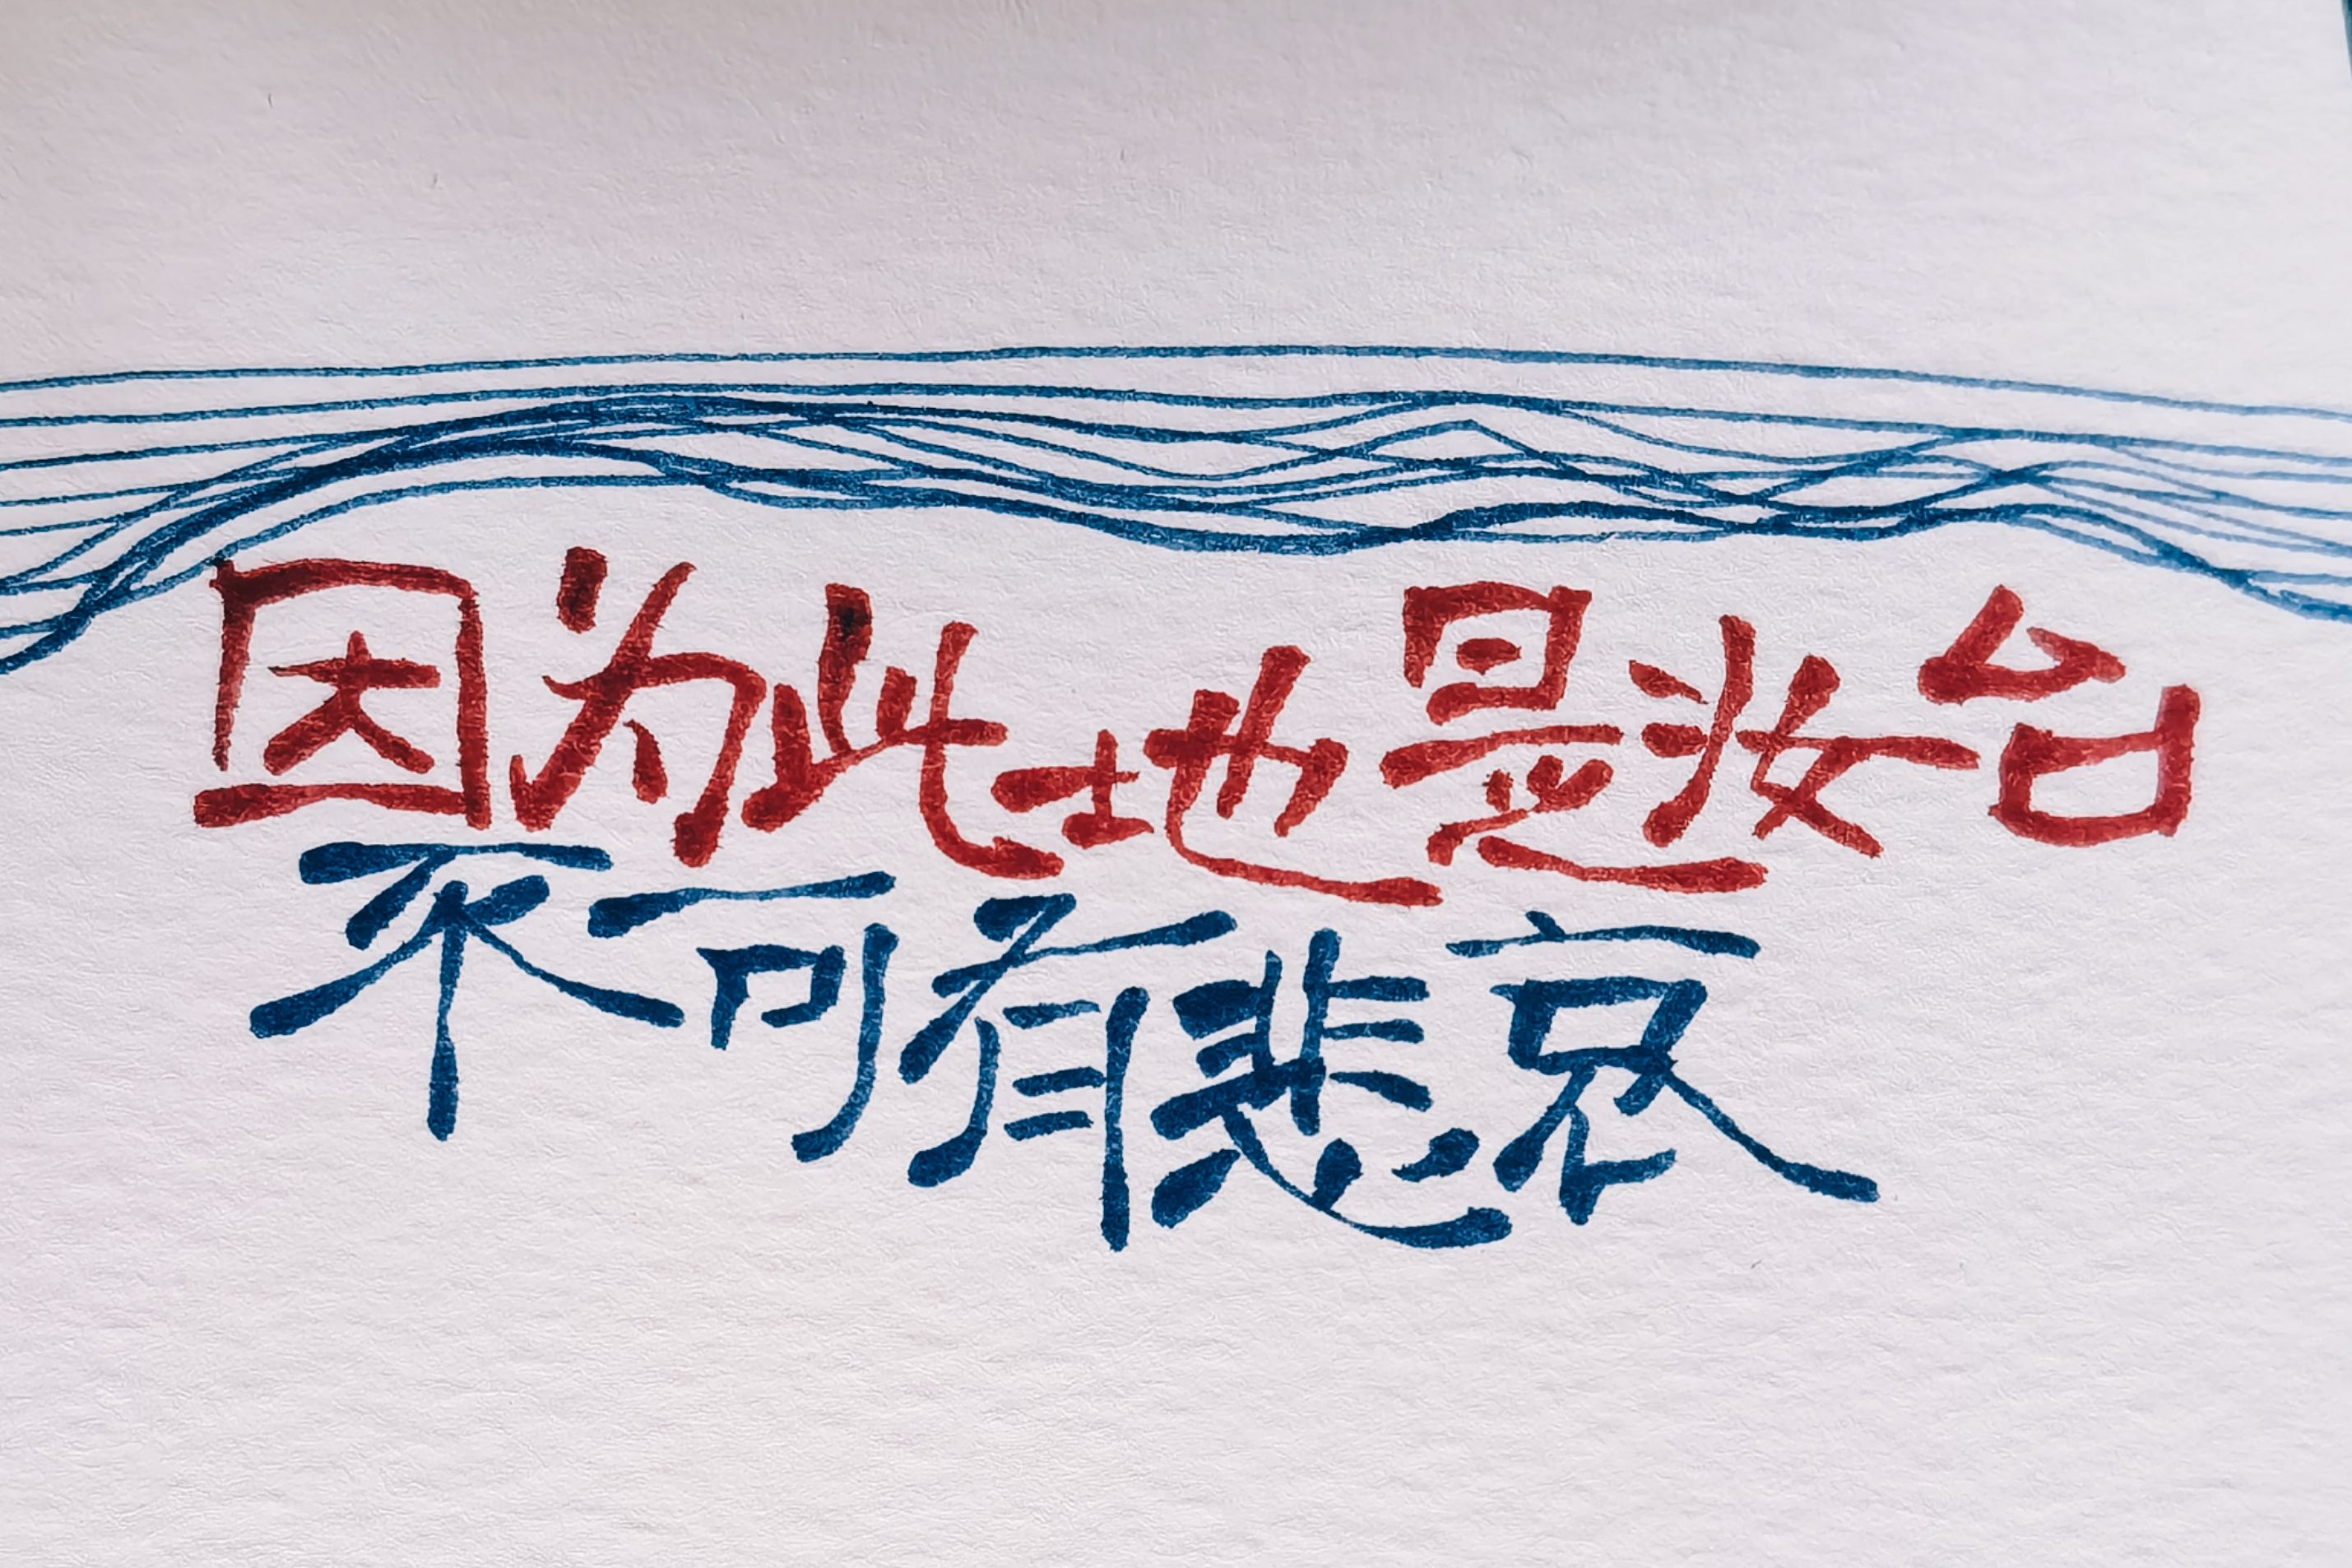 因为此地是妆台
不可有悲哀